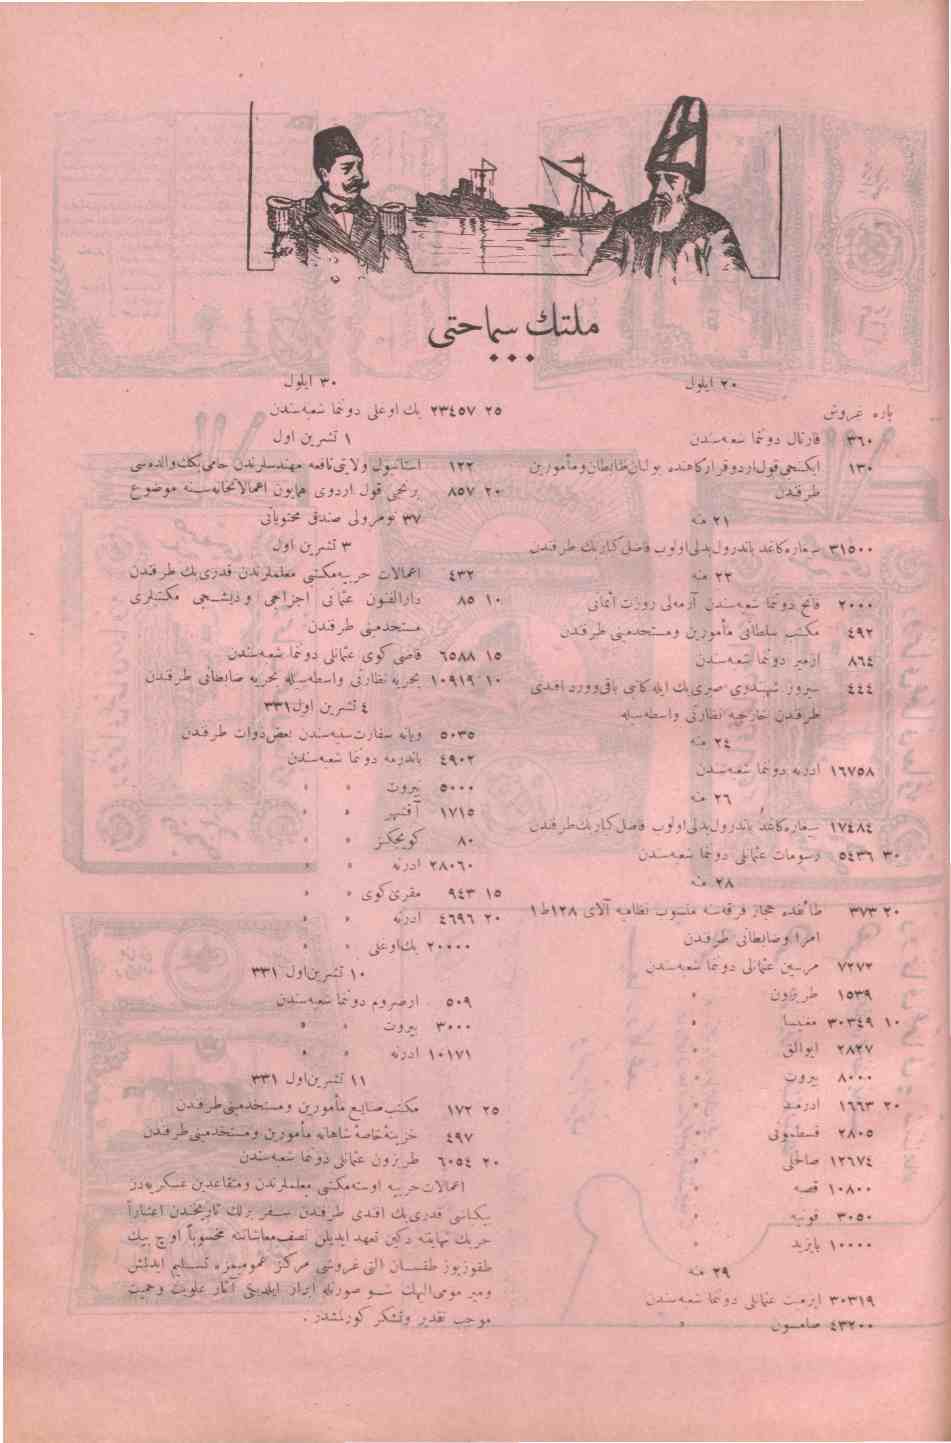 ملتك سماحتی
٢٠ ایلول
پاره غروش
٣٦٠ قارتال دوننما شعبه‌سندن
١٣٠ ایكنجی قول اردو قرارگاهنده بولنان ضابطان و مأمورین
طرفندن
٢١ منه
٣١٥٠٠ سیغاره كاغد باندرول بدلی اولوب فاضل كبار بك طرفندن
٢٢ منه
٢٠٠٠ فاتح دوننما شعبه‌سندن
٤٩٢ مكتب سلطانی مأمورین ومستخدمینی طرفندن
٨٦٤ ازمیر دوننما شعبه‌سندن
٤٤٤ سیروز شهبندری صبری بك ایله
طرفندن خارجیه نظارتی واسطه‌سیله
٢٤ منه
١٦٧٥٨ ادرنه دوننما شعبه‌سندن
٢٦ منه
١٧٤٨٤ سیغاره كاغد باندرول بدلی اولوب فاضل كبار بك طرفندن
٣٠ ٥٤٣٦ رسومات عثمانلی دوننما شعبه‌سندن
٢٨ منه
٢٠ ٣٧٣ طائفده حجاز فرقه‌سنه منسوب نظامیه آلای ١٢٨ ط ١
امرا وضابطانی طرفندن
٧٢٧٢ مرسین عثمانلی دوننما شعبه‌سندن
١٥٣٩ طربزون »
١٠ ٣٠٣٤٩ مغنیسا »
٢٨٢٧ ایوالق »
٨٠٠٠ بیروت »
٢٠ ١٦٦٣ ادرمید »
٢٨٠٥ قسطمونی »
١٢٦٧٤ صالحلی »
١٠٨٠٠ قصبه »
٣٠٥٠ قونیه »
١٠٠٠٠ بایزید »
٢٩ منه
٣٠٣١٩ ازمیت عثمانلی دوننما شعبه‌سندن
٤٣٢٠٠ صامسون »
٣٠ ایلول
٢٥ ٢٣٤٥٧ بك اوغلی دوننما شعبه‌سندن
١ تشرین اول
١٢٢ استانبول ولایتی نافعه مهندسلرندن حامی بكك والده‌سی
٢٠ ٨٥٧ برنجی قول اردوی همایون اعمالاتخانه‌سنه موضوع
٣٧ نومرولی صندق محتویاتی
٣ تشرین اول
٤٣٢ اعمالات حربیه مكتبی معلملرندن قدری بك طرفندن
١٠ ٨٥ دارالفنون عثمانی اجزاجی ودیشجی مكتبلری
مستخدمینی طرفندن
١٥ ٦٥٨٨ قاضی كوی عثمانلی دوننما شعبه‌سندن
١٠ ١٠٩١٩ بحریه نظارتی واسطه‌سیله بحریه ضابطانی طرفندن
٤ تشرین اول ٣٣١
٥٠٣٥ ویانه سفارت سنیه‌سندن بعض ذوات طرفندن
٤٩٠٢ باندرمه دوننما شعبه‌سندن
٥٠٠٠ بیروت » »
١٧١٥ آقشهر » »
٨٠ كویجكز » »
٢٨٠٦٠ ادرنه » »
١٥ ٩٤٣ مقری كوی » »
٢٠ ٤٦٩٦ ادرنه » »
٢٠٠٠٠ بك اوغلی » »
١٠ تشرین اول ٣٣١
٥٠٩ ارضروم دوننما شعبه‌سندن
٣٠٠٠ بیروت » »
١٠١٧١ ادرنه » »
١١ تشرین اول ٣٣١
٢٥ ١٧٢ مكتب صنایع مأمورین ومستخدمینی طرفندن
٤٩٧ خزینهٔ خاصهٔ شاهانه مأمورین ومستخدمینی طرفندن
٢٠ ٦٠٥٤ طربزون عثمانلی دوننما شعبه‌سندن
اعمالات حربیه اوسته مكتبی معلملرندن ومتقاعدین عسكریه‌دن
بیكباشی قدری بك افندی طرفندن سفر برلك تاریخندن اعتباراً
حربك نهایتنه دكین تعهد ایدیلن نصف معاشاتنه محسوباً اوچ بیك
طقوزیوز طقسان آلتی غروشی مركز عمومیمزه تسلیم ایدلمش
ومیر مومی الیهك شو صورتله ابراز ایلدیكی آثار علویت وحمیت
موجب تقدیر وتشكر كورلمشدر .